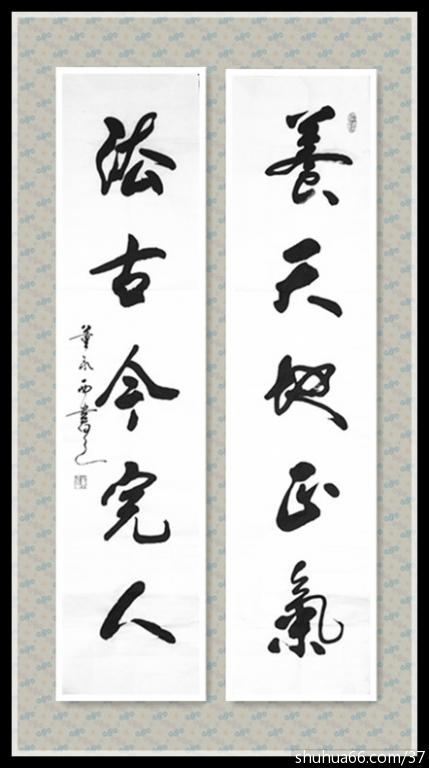 養天地正氣
法古今完人
董永西書之
shuhua66.com/37